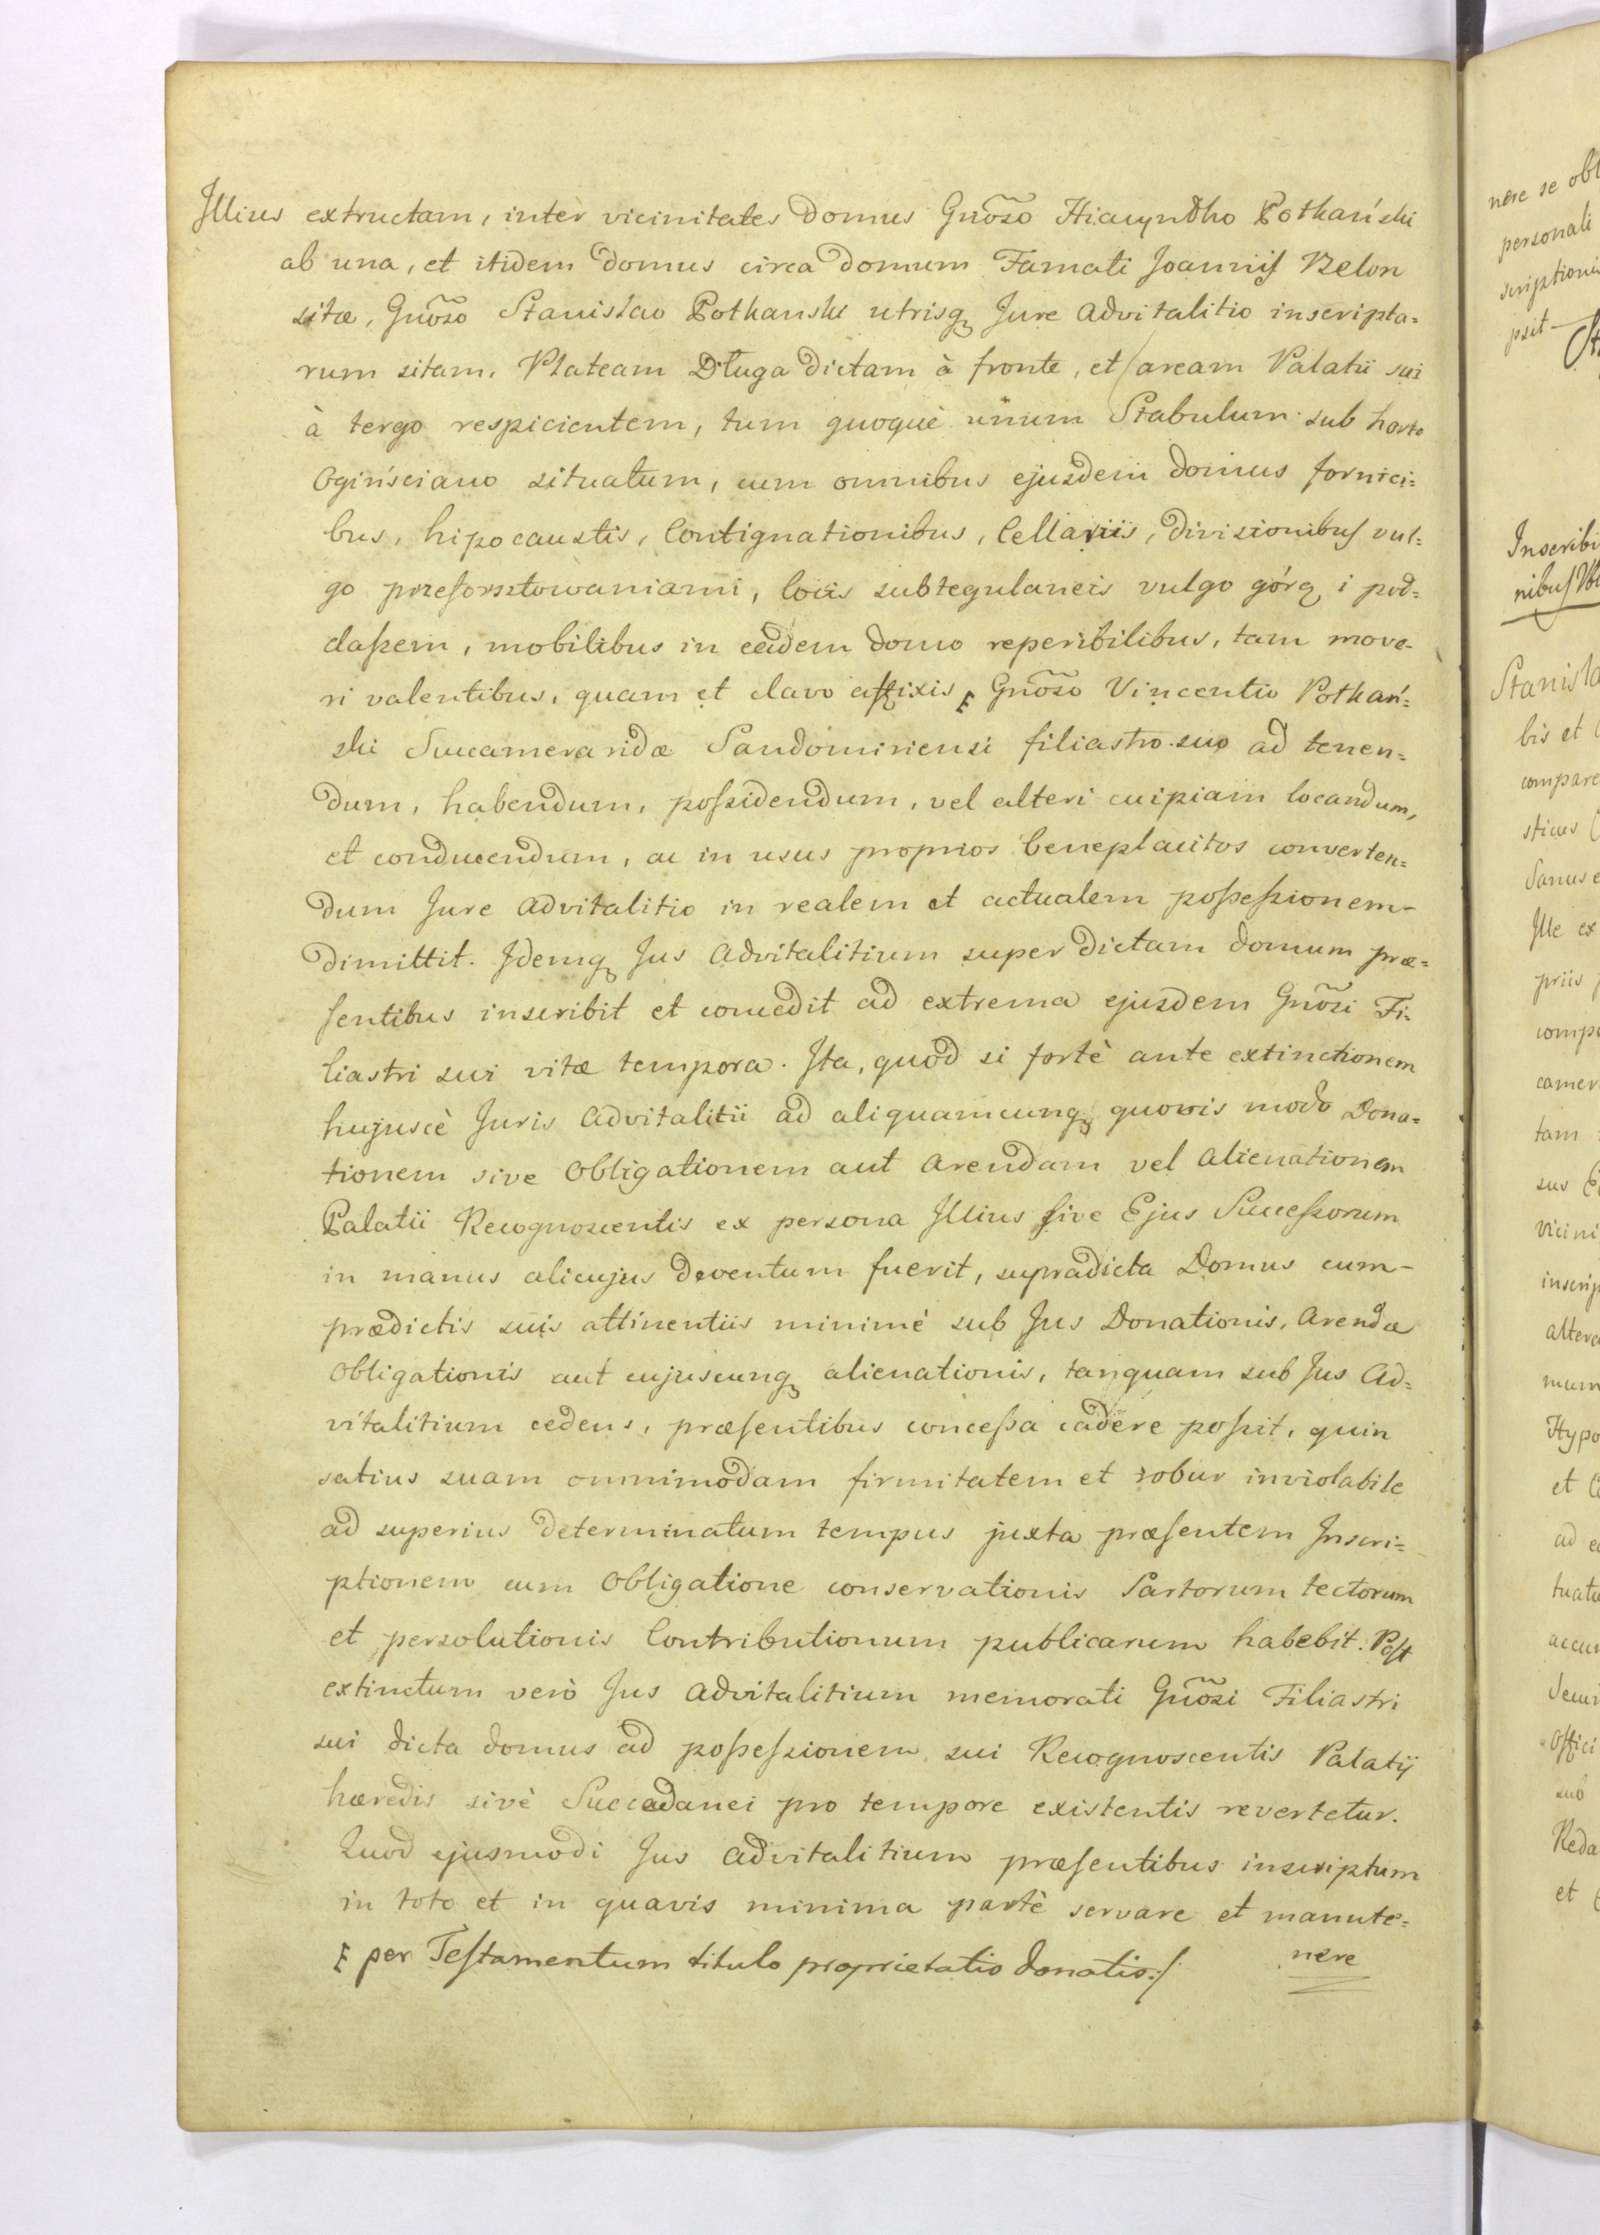 Illius extructam, inter vicinitates Domus Gnoso Hiacyntho Potkański
ab una, et itidem Domus circa Domum Famati Joannis Belon
sitæ, Gnoso Stanislao Potkanski utrisq Jure Advitalitio inscripta=
rum sitam. Plateam Długa dictam à fronte, et aream Palatii sui
à tergo respicientem, tum quoquè unum Stabulum sub horto
Ogińsciano situatum, cum omnibus ejusdem domus fornici=
bus, hipocaustis, Contignationibus, Cellariis, divisionibus vul=
go przeforsztowaniami, lociis subtegulaneis vulgo górą i pod=
daszem, mobilibus in eadem domo reperibilibus, tam move=
ri valentibus, quam et clavo affixis, Gnoso Vincentio Potkań=
ski Succameraridæ Sandomiriensi filiastro suo ad tenen=
dum, habendum, possidendum, vel alteri cuipiam locandum,
et conducendum, ac in usus proprios beneplacitos converten=
dum Jure Advitalitio in realem et actualem possessionem-
dimittit. Idemq Jus Advitalitium super dictam domum præ=
sentibus inscribit et concedit ad extrema ejusdem Gnosi Fi=
liastri sui vitæ tempora. Ita, quod si fortè ante extinctionem
hujuscè Juris Advitalitii ad aliquamcunq quovis modo Dona=
tionem sive Obligationem aut Arendam vel Alienationem
Palatii Recognoscentis ex persona Illius sive Ejus Successorum
in manus alicujus deventum fuerit, supradicta Domus cum-
prædictis suis attinentiis minimè sub Jus Donationis, Arendæ
Obligationis aut cujuscunq alienationis, tanquam sub Jus Ad=
vitalitium cedens, præsentibus concessa cadere possit, quin
satius suam omnimodam firmitatem et robur inviolabile
ad superius determinatum tempus juxta præsentem Inscri=
ptionem cum Obligatione conservationis Sartorum tectorum
et persolutionis Contributionum publicarum habebit. Post
extinctum verò Jus Advitalitium memorati Gnosi Filiastri
sui dicta domus ad possessionem sui Recognoscentis Palatij
hæredis sivè Succedanei pro tempore existentis revertetur.
Quod ejusmodi Jus Advitalitium præsentibus inscriptum
in toto et in quavis minima partè servare et manute=
nere
per Testamentum titulo proprietatio donatis./
nere se obl
personali
scriptionis
psit
Inscribi
nibus
Stanisla
bis et
compare
sticus
Sanus e
Ille ex
priis
compa
camer
tam
sus
vicini
inscrip
altera
mum
Hypo
et
ad e
tuatu
accur
Offici
sub
Reda
et